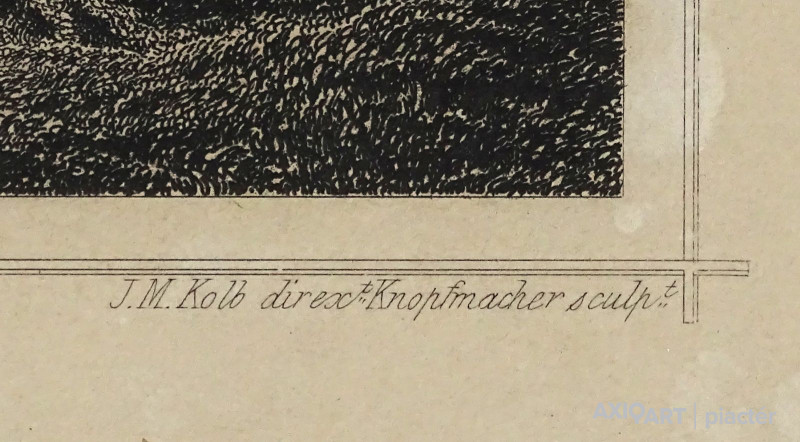 J.M. Kolb direxᵗ. Knopfmacher sculpᵗ.
AXIOART | piactér